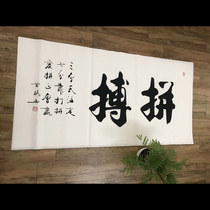 拼搏
三分天注定
七分靠打拼
爱拼正会赢